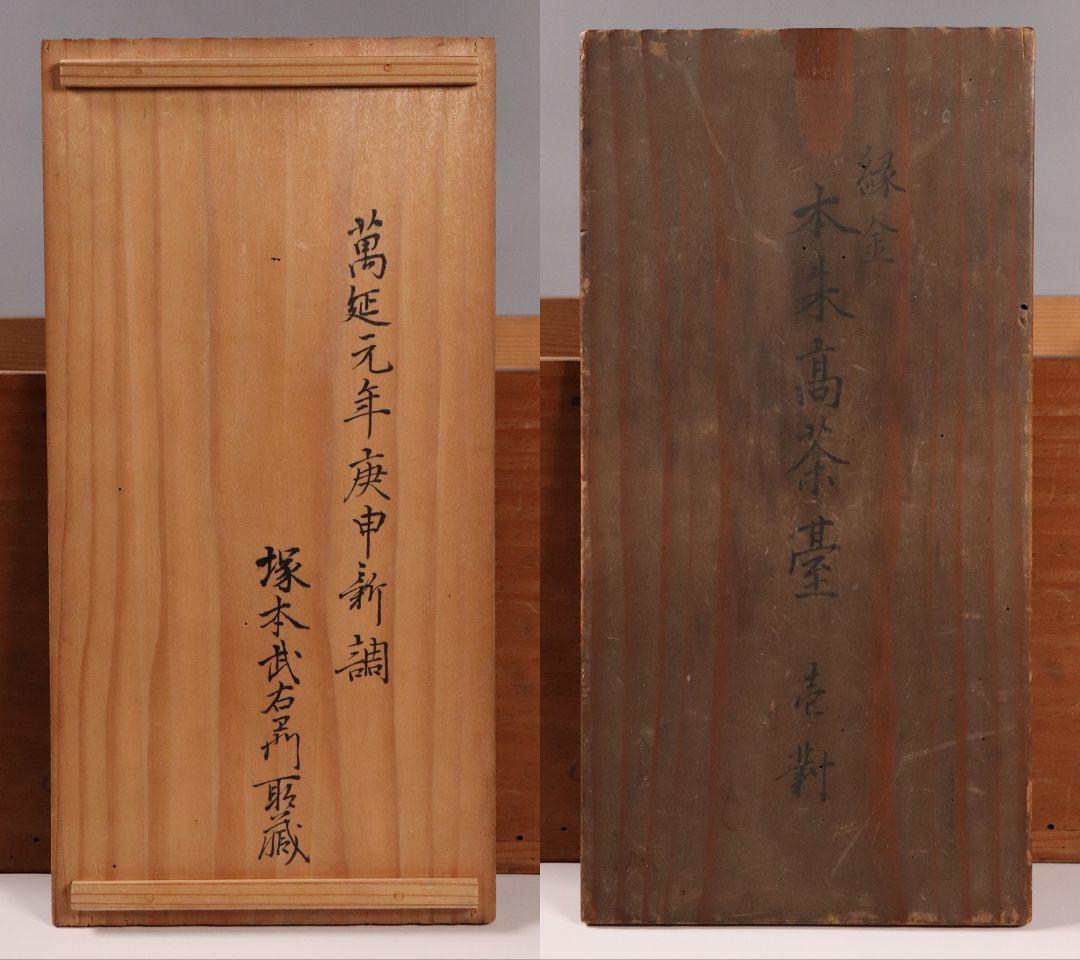 萬延元年庚申新調
塚本武右衛門所藏
縁金
本朱高茶臺 壱對